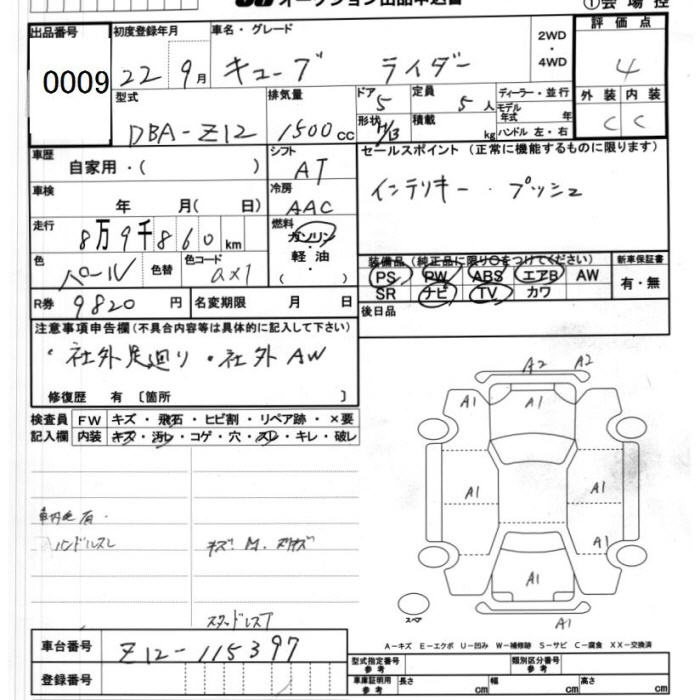 オークション出品申込書 ①会 場 控
出品番号 初度登録年月 車名・グレード 2WD・4WD 評 価 点
0009 22 9月 キューブ ライダー 4
型式 排気量 ドア 5 定員 5人 ディーラー・並行 外装 内装
DBA-Z12 1500cc 形状 積載 kg モデル年式 年 ハンドル 左・右 C C
車歴 自家用・( ) シフト AT セールスポイント (正常に機能するものに限ります)
車検 年 月( 日) 冷房 AAC インテリキー・プッシュ
走行 8万9千860km 燃料 ガソリン・軽油・( )
色 パール 色替 色コード ax1
装備品(純正品に限り○をつけてください) 新車保証書
PS PW ABS エアB AW 有・無
SR ナビ TV カワ
R券 9820円 名変期限 月 日 後日品
注意事項申告欄(不具合内容等は具体的に記入して下さい)
・社外足廻り・社外AW
修復歴 有 〔箇所 〕
検査員 FW キズ・飛石・ヒビ割・リペア跡・×要
記入欄 内装 キズ・汚レ・コゲ・穴・スレ・キレ・破レ
A2 A2
A1 A1
A1 A1
A1 A1
A1
ハンドルスレ
スタッドレスT
スペア
車台番号 Z12-115397
A-キズ E-エクボ U-凹み W-補修跡 S-サビ C-腐食 XX-交換済
登録番号 型式指定番号 参考 類別区分番号 参考
車庫証明用 参考 長さ cm 幅 cm 高さ cm